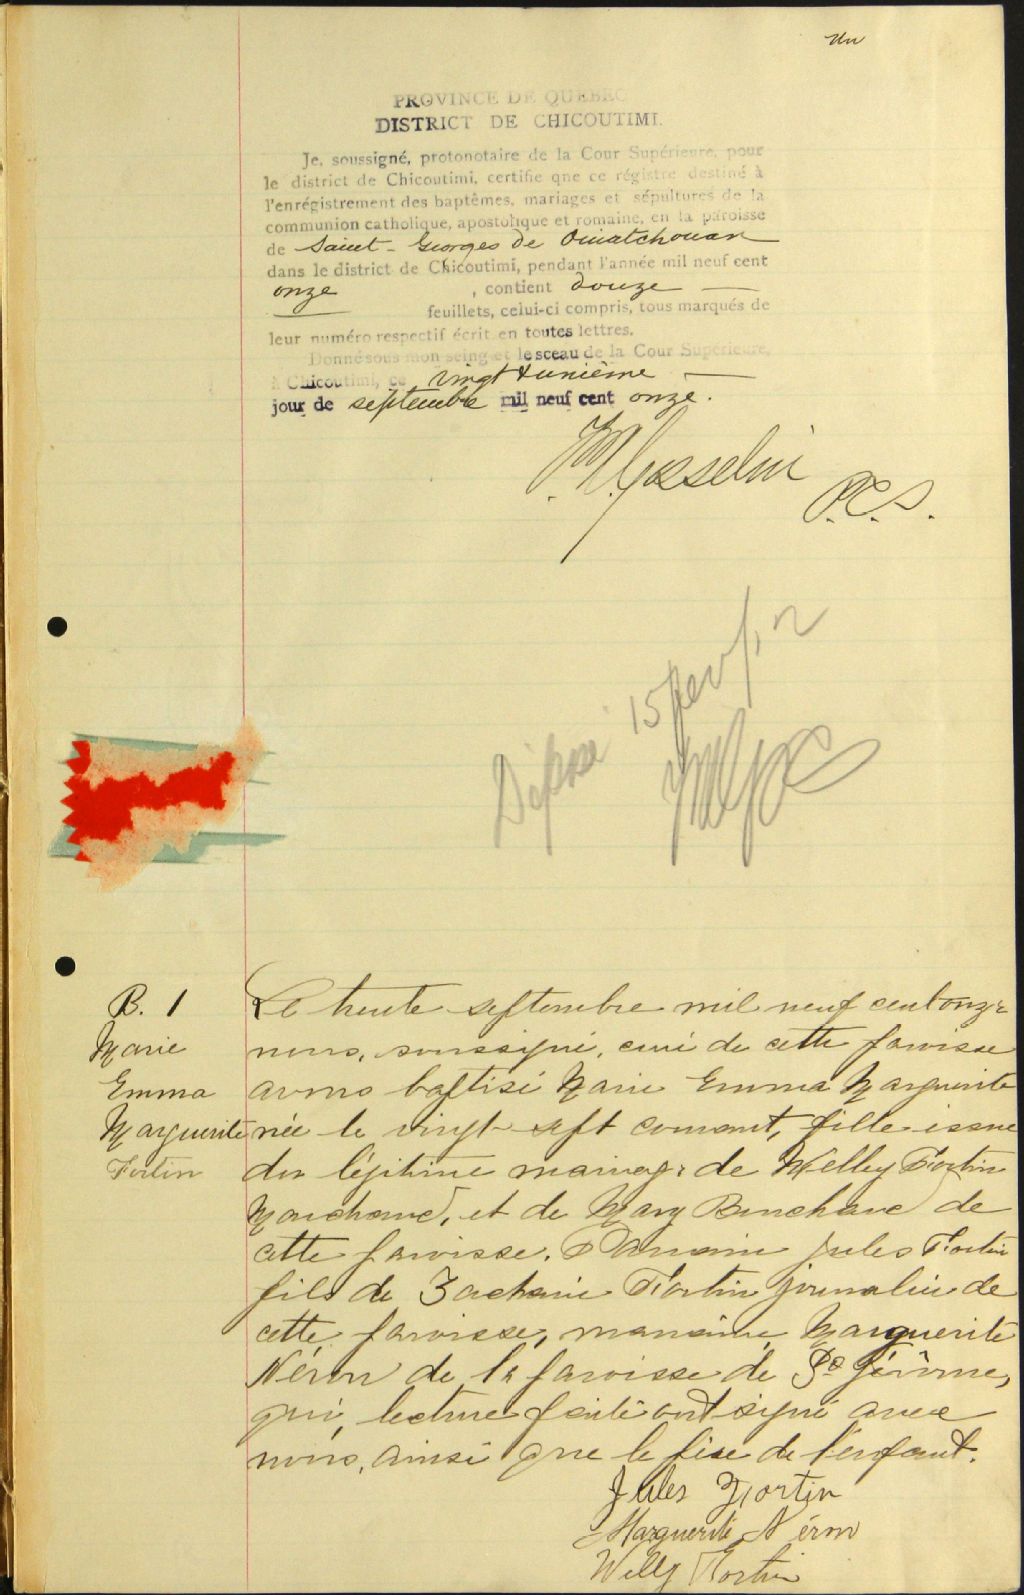 Un
PROVINCE DE QUEBEC
DISTRICT DE CHICOUTIMI.
Je, soussigné, protonotaire de la Cour Supérieure, pour
le district de Chicoutimi, certifie que ce régistre destiné à
l'enrégistrement des baptêmes, mariages et sépultures de la
communion catholique, apostolique et romaine, en la paroisse
de Saint-Georges de Ouiatchouan
dans le district de Chicoutimi, pendant l'année mil neuf cent
onze, contient douze
feuillets, celui-ci compris, tous marqués de
leur numéro respectif écrit en toutes lettres.
Donné sous mon seing et le sceau de la Cour Supérieure,
à Chicoutimi, ce vingt & unième
jour de septembre mil neuf cent onze.
Gosselin
P.C.S.
Déposé 15 fevr. 12
B. 1
Marie
Emma
Marguerite
Fortin
Le trente septembre mil neuf cent onze
nous, soussigné, curé de cette paroisse
avons baptisé Marie Emma Marguerite
née le vingt-sept courant, fille issue
du légitime mariage de Welley Fortin
Marchand, et de Mary Bouchard de
cette paroisse. Parrain Jules Fortin
fils de Zacharie Fortin journalier de
cette paroisse, marraine, Marguerite
Néron de la paroisse de St Jérôme,
qui, lecture faite ont signé avec
nous, ainsi que le père de l'enfant.
Jules Fortin
Marguerite Néron
Willy Fortin